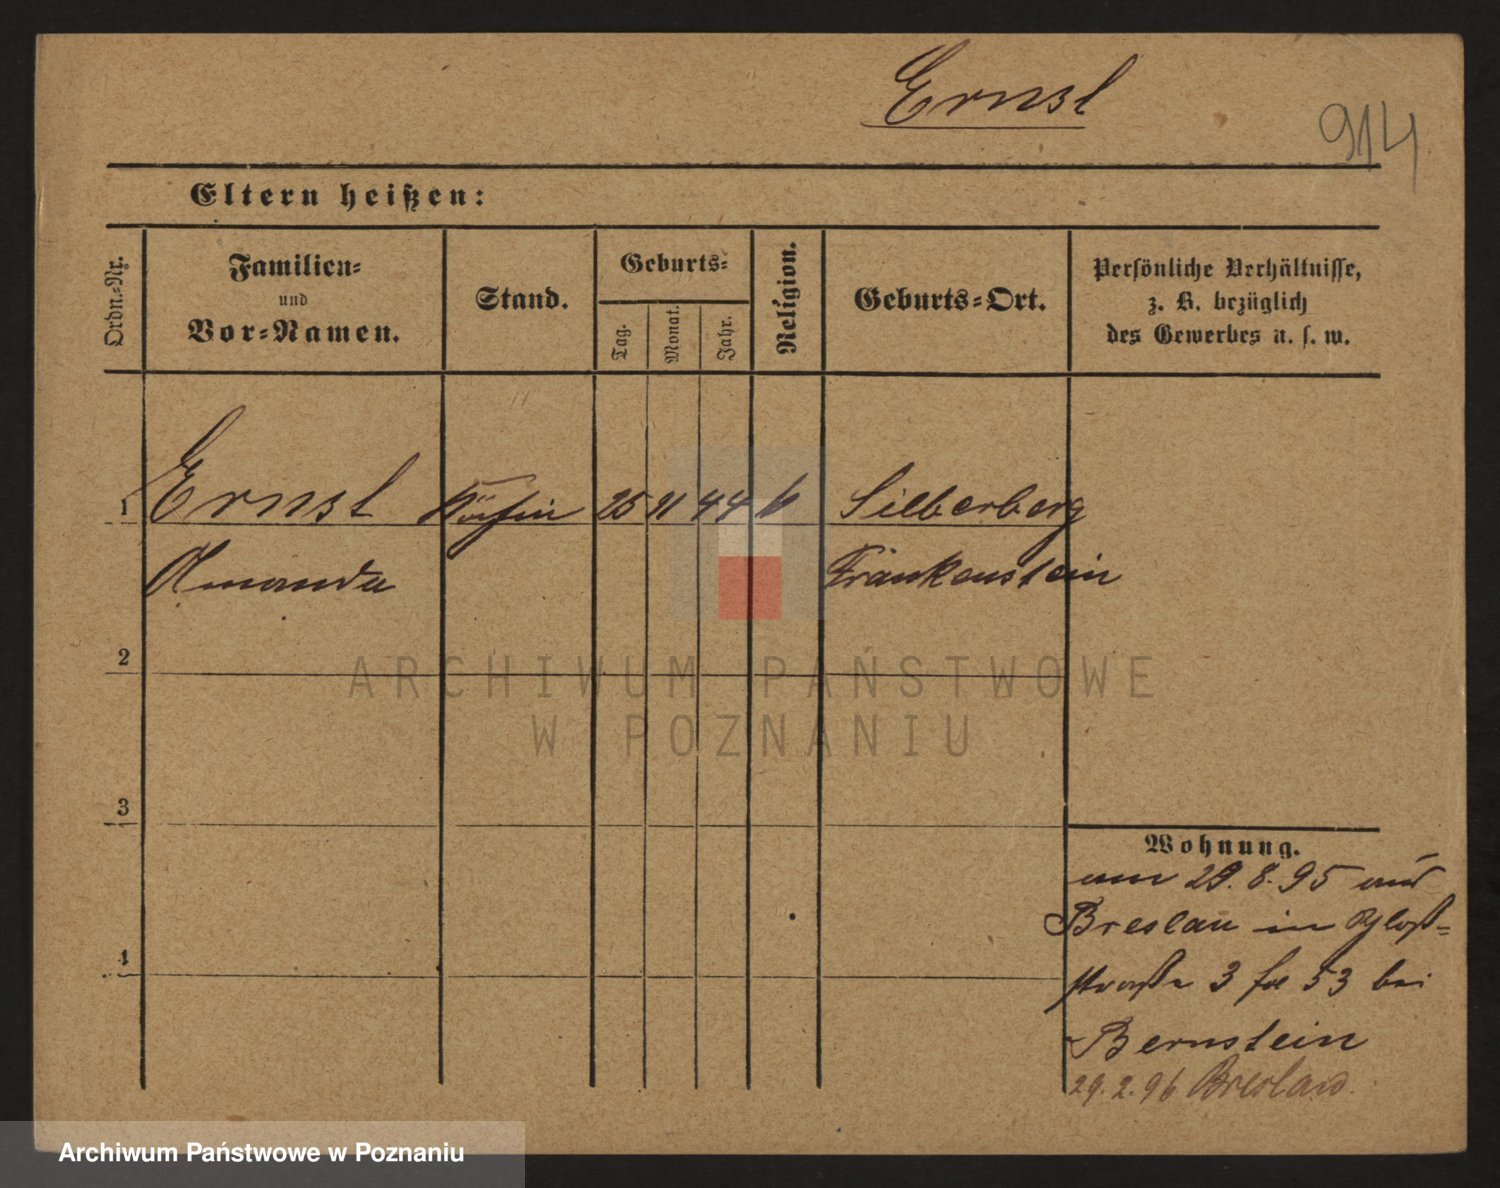 Ernst
914
Eltern heißen:
Ordn.-Nr.
Familien-
und
Vor-Namen.
Stand.
Geburts-
Tag.
Monat.
Jahr.
Religion.
Geburts-Ort.
Persönliche Verhältnisse,
z. B. bezüglich
des Gewerbes u. s. w.
1 Ernst Köchin 25 11 44 k Silberberg
Amanda Frankenstein
2
3
4
Wohnung.
am 29. 8. 95 aus
Breslau in
straße 3 53 bei
Bernstein
29. 2. 96 Breslau.
ARCHIWUM PAŃSTWOWE
W POZNANIU
Archiwum Państwowe w Poznaniu